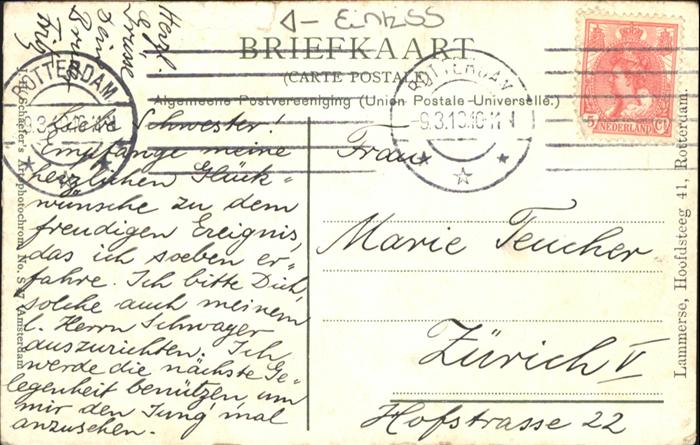 Herzl.
Grüsse
Dein
Bruder
Fritz
◁– Einkiss
BRIEFKAART
(CARTE POSTALE)
Algemeene Postvereeniging (Union Postale-Universelle.)
ROTTERDAM
ROTTERDAM
-9.3.1
5 Ct
NEDERLAND
Liebe Schwester!
Empfange meine
herzlichen Glück-
wünsche zu dem
freudigen Ereignis,
das ich soeben er-
fahre. Ich bitte Dich,
solche auch meinem
l. Herrn Schwager
auszurichten. Ich
werde die nächste Ge-
legenheit benützen, um
mir den Jung' mal
anzusehen.
Frau
Marie Teucher
Zürich V
Hofstrasse 22
Schaefer's Artophotochrom No. S (Amsterdam
Lammerse, Hoofdsteeg 41, Rotterdam.